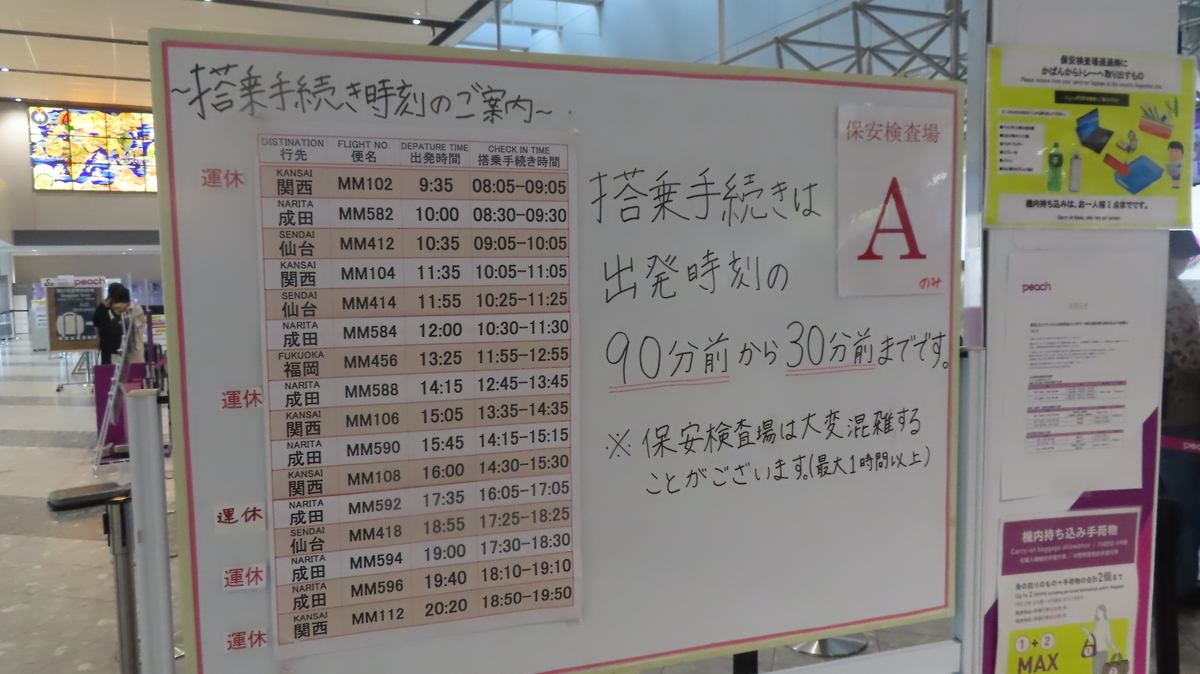 ~搭乗手続き時刻のご案内~
DISTINATION 行先 FLIGHT NO. 便名 DEPATURE TIME 出発時間 CHECK IN TIME 搭乗手続き時間
運休 KANSAI 関西 MM102 9:35 08:05-09:05
NARITA 成田 MM582 10:00 08:30-09:30
SENDAI 仙台 MM412 10:35 09:05-10:05
KANSAI 関西 MM104 11:35 10:05-11:05
SENDAI 仙台 MM414 11:55 10:25-11:25
NARITA 成田 MM584 12:00 10:30-11:30
FUKUOKA 福岡 MM456 13:25 11:55-12:55
運休 NARITA 成田 MM588 14:15 12:45-13:45
KANSAI 関西 MM106 15:05 13:35-14:35
NARITA 成田 MM590 15:45 14:15-15:15
KANSAI 関西 MM108 16:00 14:30-15:30
運休 NARITA 成田 MM592 17:35 16:05-17:05
SENDAI 仙台 MM418 18:55 17:25-18:25
運休 NARITA 成田 MM594 19:00 17:30-18:30
NARITA 成田 MM596 19:40 18:10-19:10
運休 KANSAI 関西 MM112 20:20 18:50-19:50
搭乗手続きは
出発時刻の
90分前から30分前までです。
※保安検査場は大変混雑する
ことがございます。(最大1時間以上)
保安検査場
A
のみ
保安検査場通過時に
かばんからトレーへ取り出すもの
機内持ち込みは、お一人様2点までです。
Carry on items, one two per person.
peach
peach
機内持ち込み手荷物
Carry-on baggage allowance
身の回りのもの+手荷物の合計2個まで
1+2
MAX